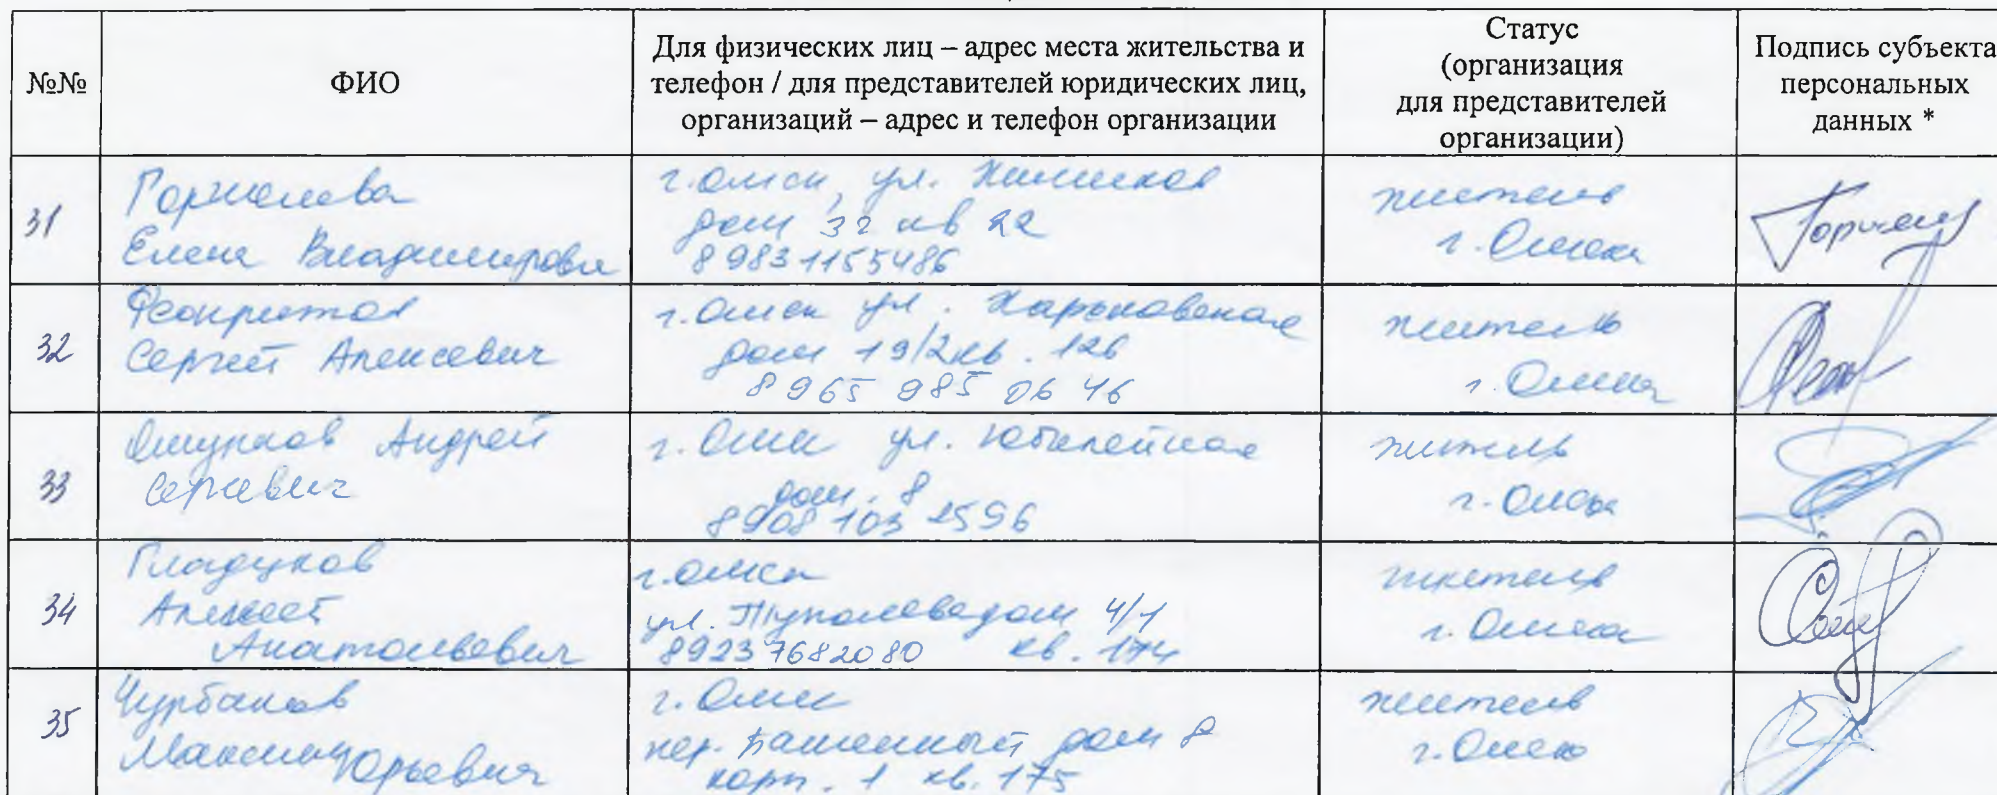 №№
ФИО
Для физических лиц – адрес места жительства и
телефон / для представителей юридических лиц,
организаций – адрес и телефон организации
Статус
(организация
для представителей
организации)
Подпись субъекта
персональных
данных *
31
Елена Владимировна
г. Омск, ул.
дом 32 кв 22
89831155486
житель
г. Омска
32
Феокритов
Сергей Алексевич
г. Омск ул. Харьковская
дом 19/2 кв. 126
8 965 985 06 46
житель
г. Омска
33
Андрей
Сергеевич
г. Омск ул. Юбилейная
дом. 8
8908 103 2596
житель
г. Омска
34
Гладунов
Алексей
Анатольевевич
г. Омск
ул. Туполева дом 4/1
89237682080 кв. 174
житель
г. Омска
35
Чурбаков
Максим Юрьевич
г. Омск
пер. Башенный дом 8
корп. 1 кв. 175
житель
г. Омска